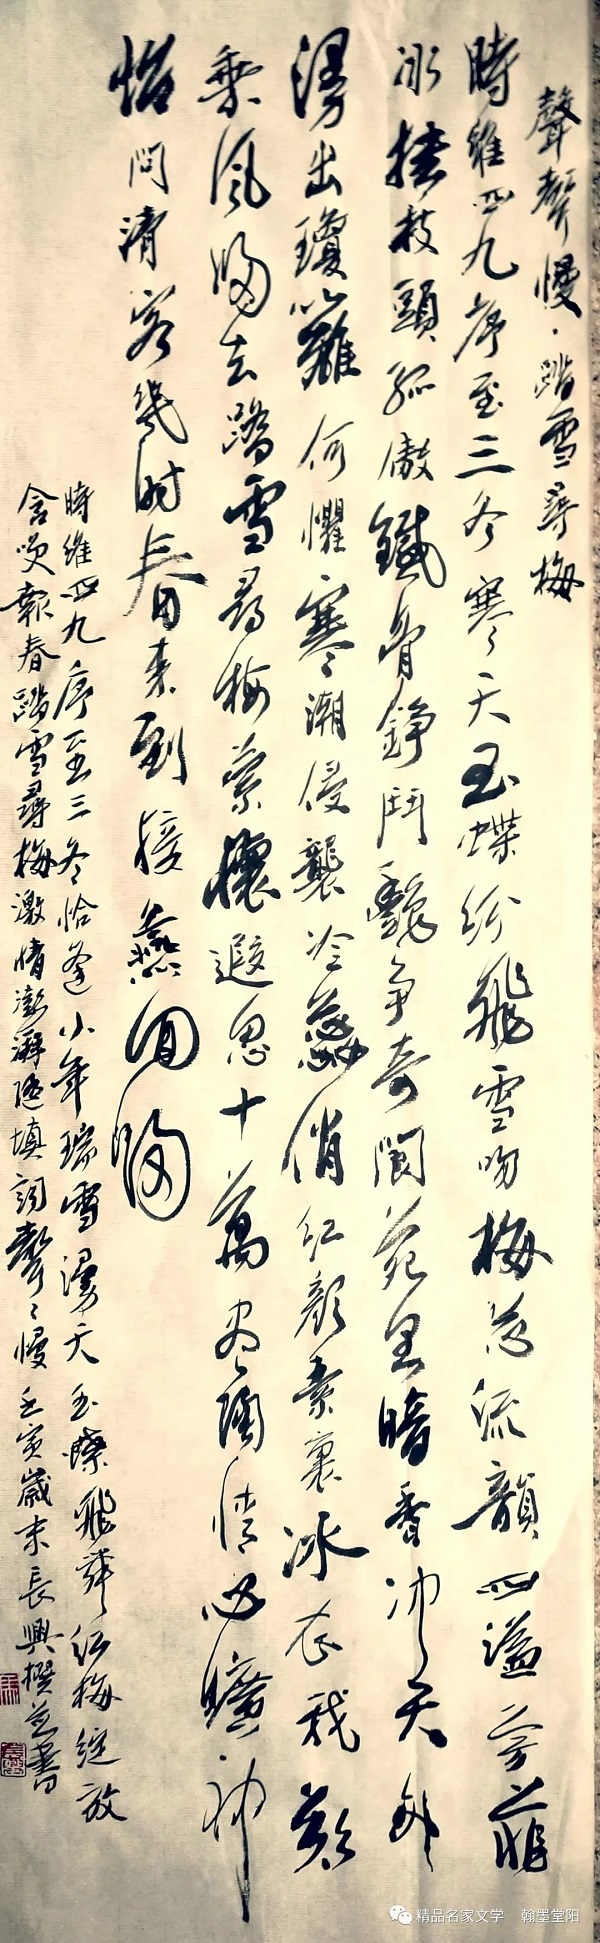 聲聲慢·踏雪尋梅
時維四九序至三冬寒天玉蝶紛飛雪吻梅蕊流韻四溢芳菲
冰掛枝頭孤傲鐵骨錚鬥艷爭奇閬苑里暗香沖天外
漫出瓊籬何懼寒潮侵襲冷蕊俏紅顏素裹冰衣我欲
乘風歸去踏雪尋梅縈懷遐思十萬畫陶情心曠神
怡問清客幾時春來到接燕回歸
時維四九序至三冬恰逢小年瑞雪漫天玉蝶飛舞紅梅綻放
含笑報春踏雪尋梅激情澎湃隨填詞聲聲慢壬寅歲末長興撰並書
精品名家文学 翰墨堂阳